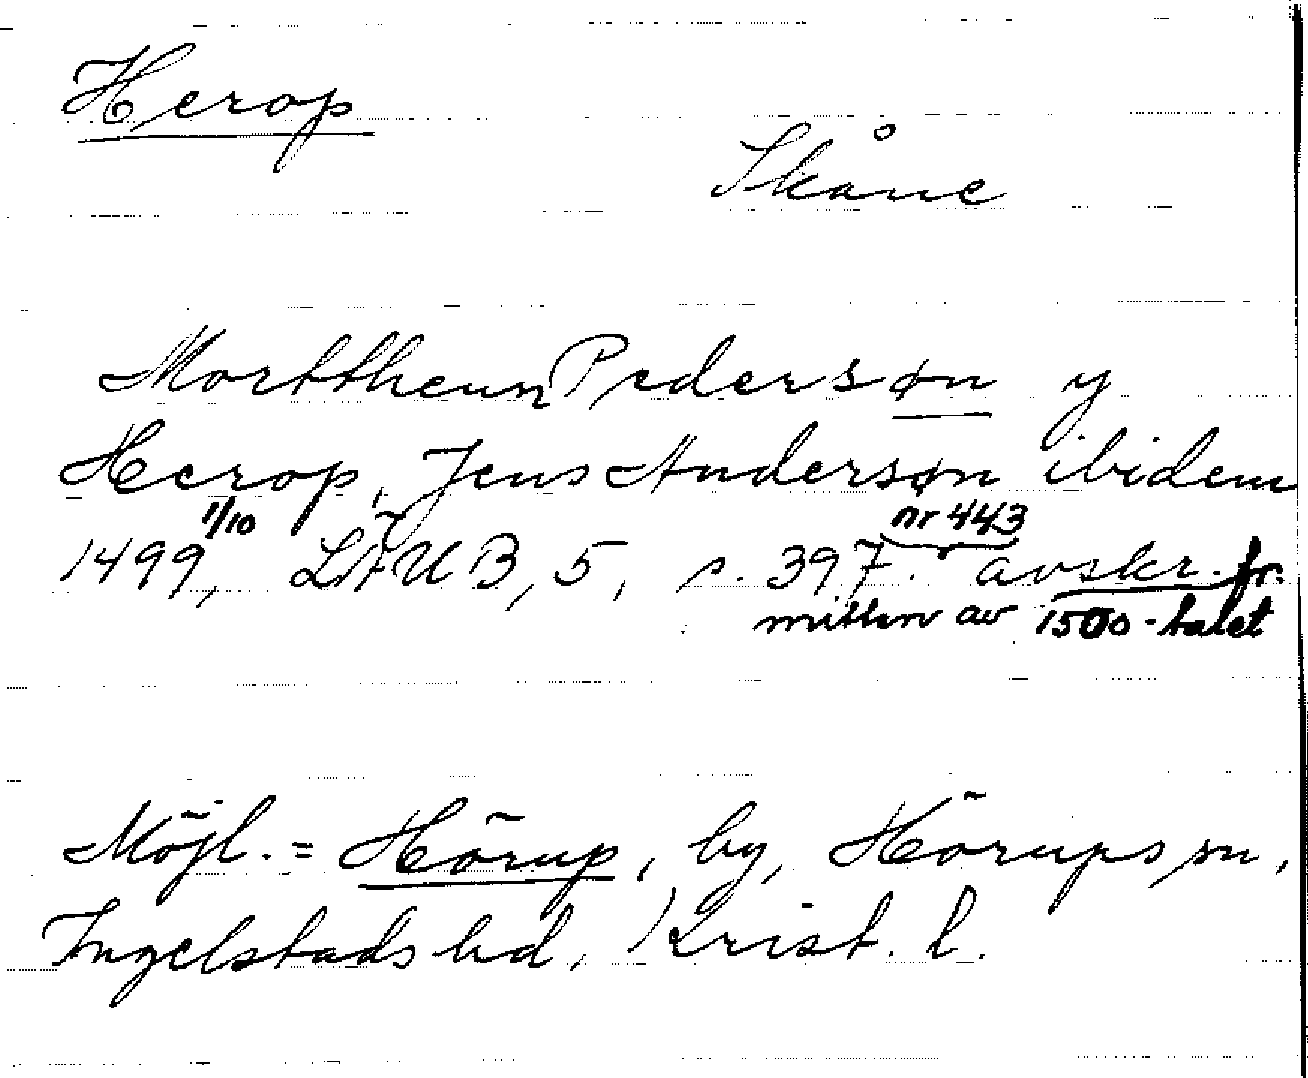 Herop
Skåne
Morttheun Pedersøn y
Herop, Jens Andersøn ibidem
1499, 1/10 LÄUB, 5, s. 397. nr 443 avskr. fr.
mitten av 1500-talet
Möjl. = Hörup, by, Hörups sn,
Ingelstads hd, Krist. l.